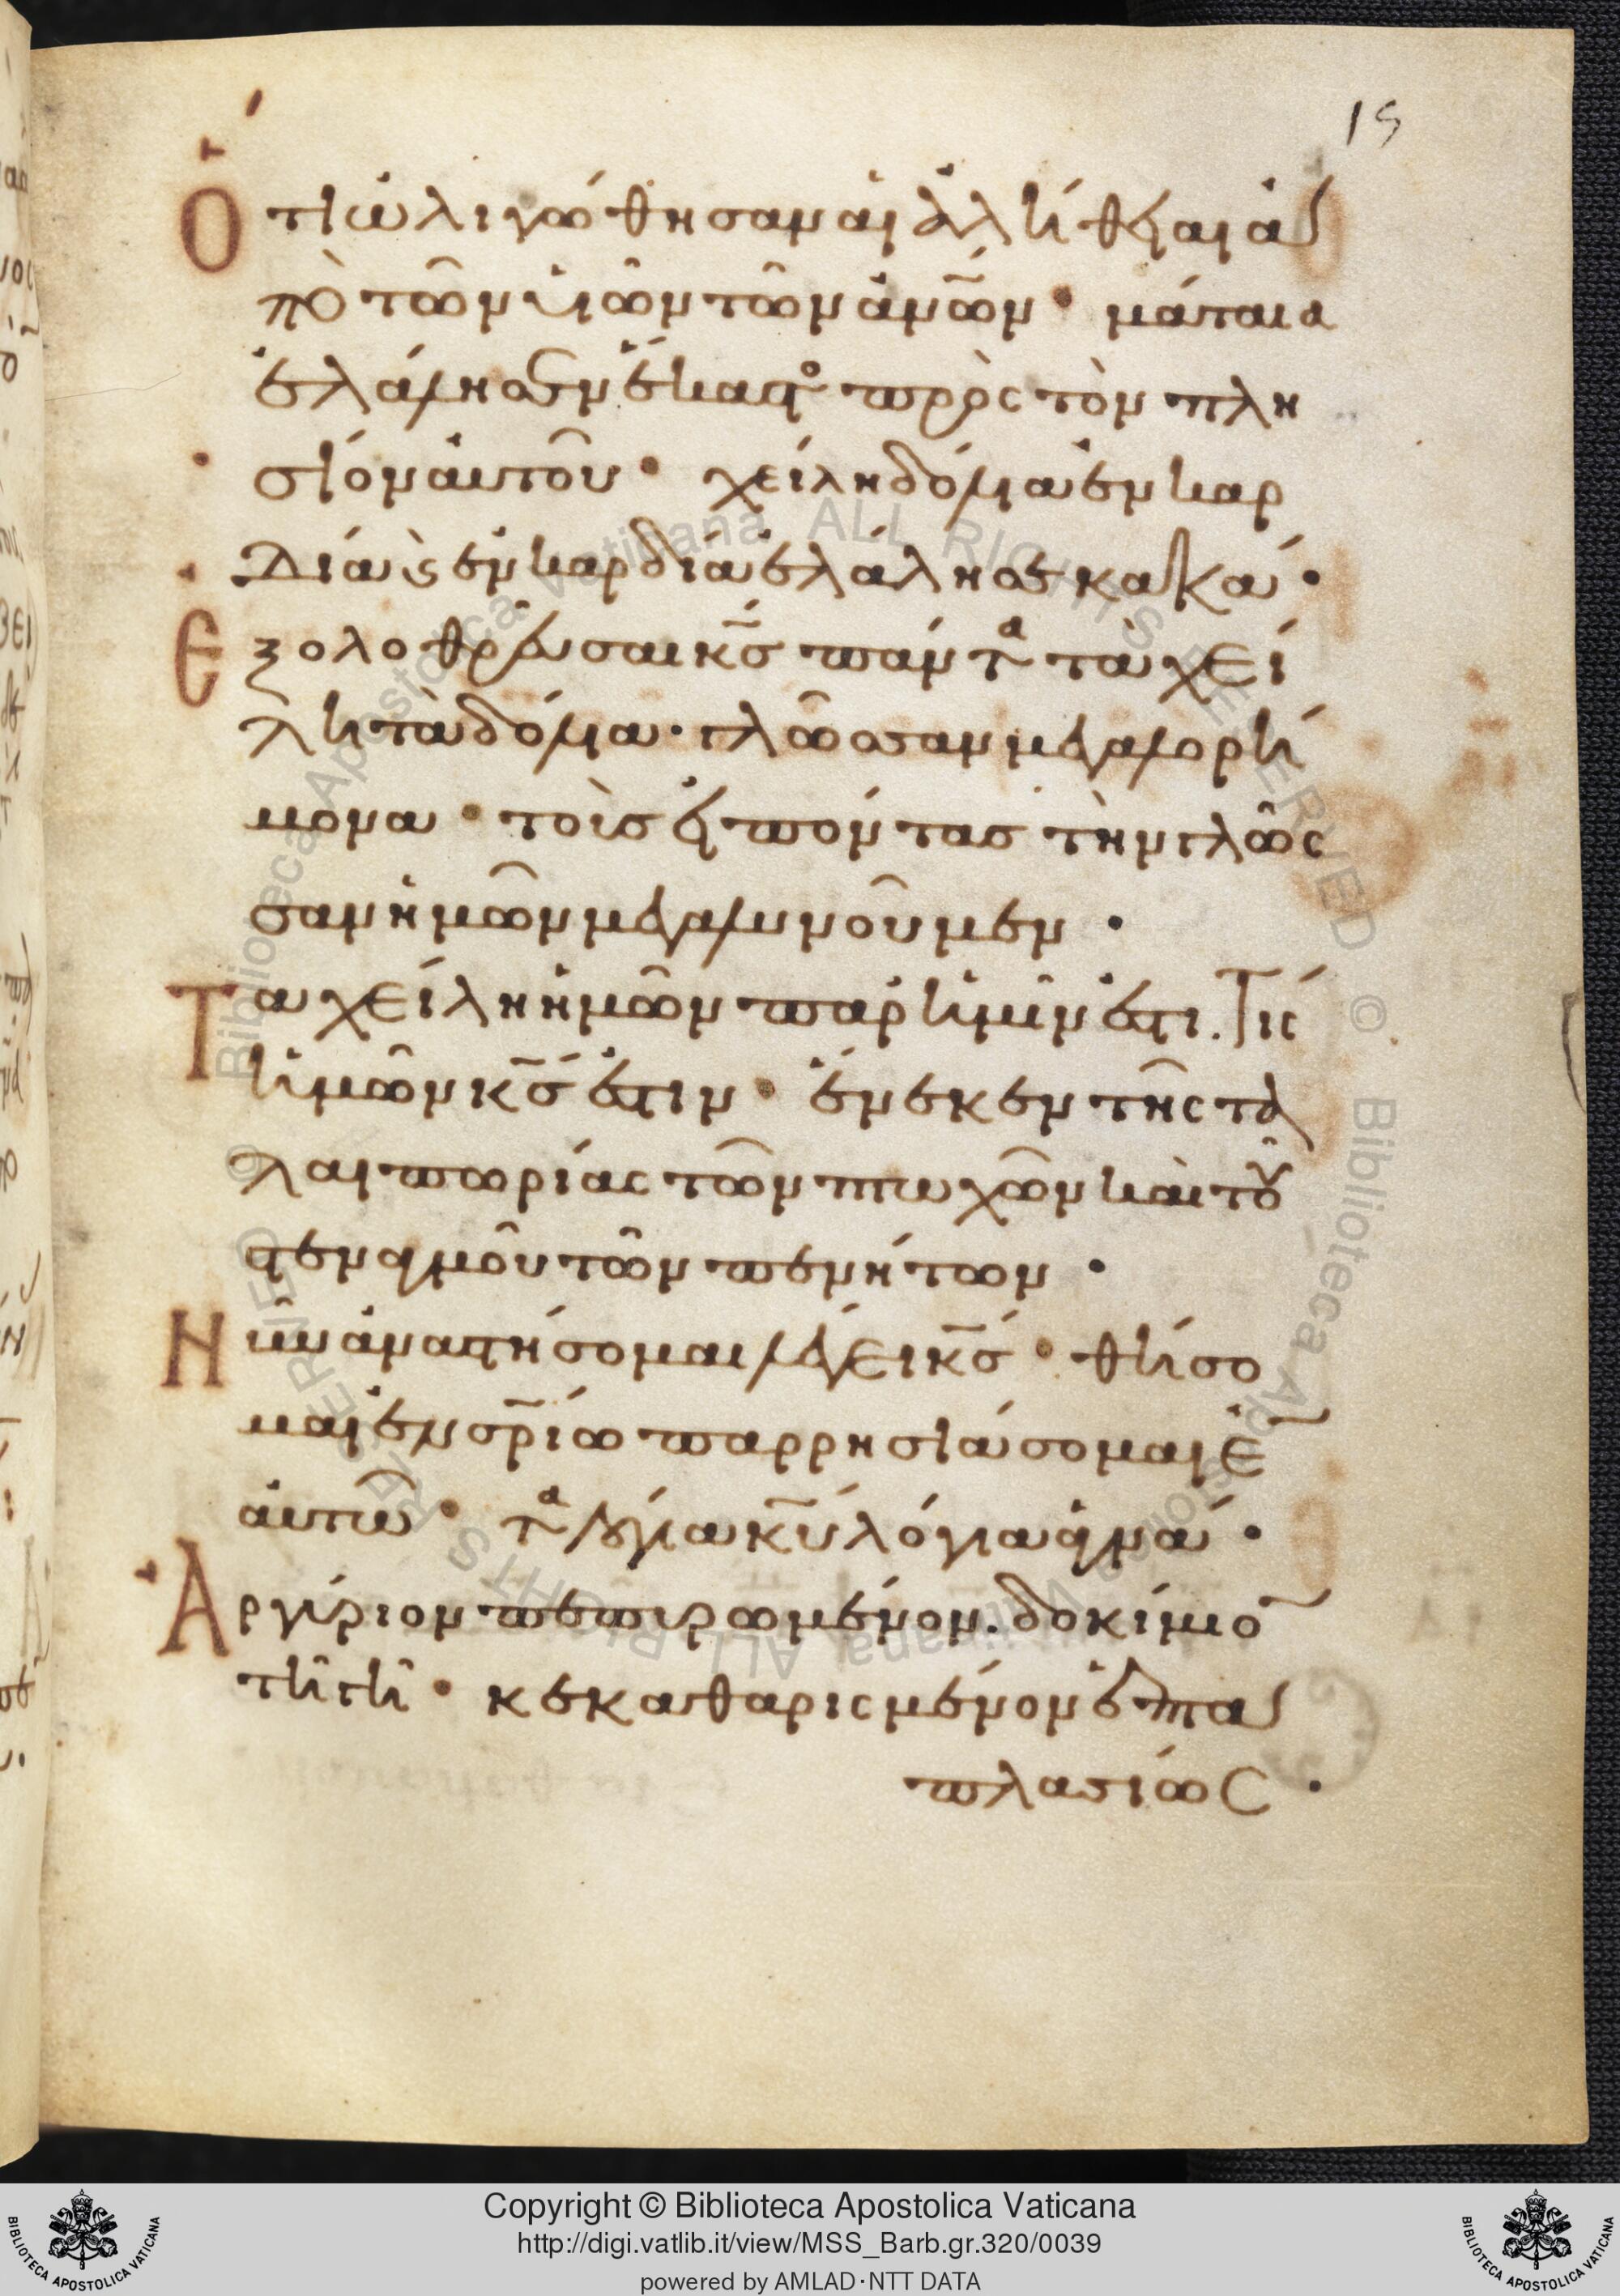 15
Ὅτι ὠλιγώθησαν αἱ ἀλήθειαι ἀ
πὸ τῶν υἱῶν τῶν ἀν̅ων· μάταια
ἐλάλησεν ἕκαστος πρὸς τὸν πλη
σίον αὐτοῦ· χείλη δόλια ἐν καρ
δία ϛ ἐν καρδία ἐλάλησε κακά·
Ἐξολοθρεύσαι κ̅ς πάντα τὰ χεί
λη τὰ δόλια· γλῶσσαν μεγαλορή
μονα· τοὺς εἰπόντας τὴν γλῶς
σαν ἡμῶν μεγαλυνοῦμεν·
Τὰ χείλη ἡμῶν παρ' ἡμῖν ἐστι. Τίς
ἡμῶν κ̅ς ἐστιν· ἕνεκεν τῆς τα
λαιπωρίας τῶν πτωχῶν καὶ τοῦ
στεναγμοῦ τῶν πενήτων·
Νῦν ἀναστήσομαι λέγει κ̅ς· θήσο
μαι ἐν σ̅ριω παρρησιάσομαι ἐ̅
αὐτῶ· τὰ λόγια κ̅υ λόγια ἁγνά·
Ἀργύριον πεπυρωμένον. δοκίμιο̅
τῆ γῆ· κεκαθαρισμένον ἑπτα
πλασίως·
Copyright © Biblioteca Apostolica Vaticana
http://digi.vatlib.it/view/MSS_Barb.gr.320/0039
powered by AMLAD·NTT DATA